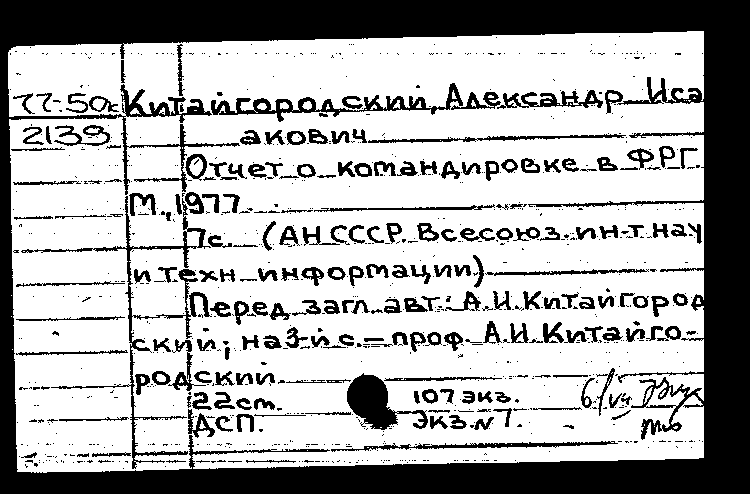 77-50к Китайгородский, Александр Иса
2139 акович
Отчет о командировке в ФРГ
М., 1977.
7с. (АН СССР. Всесоюз. ин-т науч
и техн. информации)
Перед загл. авт.: А.И.Китайгород
ский; на 3-й с. — проф. А.И.Китайго-
родский.
22cm. 107 экз.
ДСП. Экз.№1.
6/VII